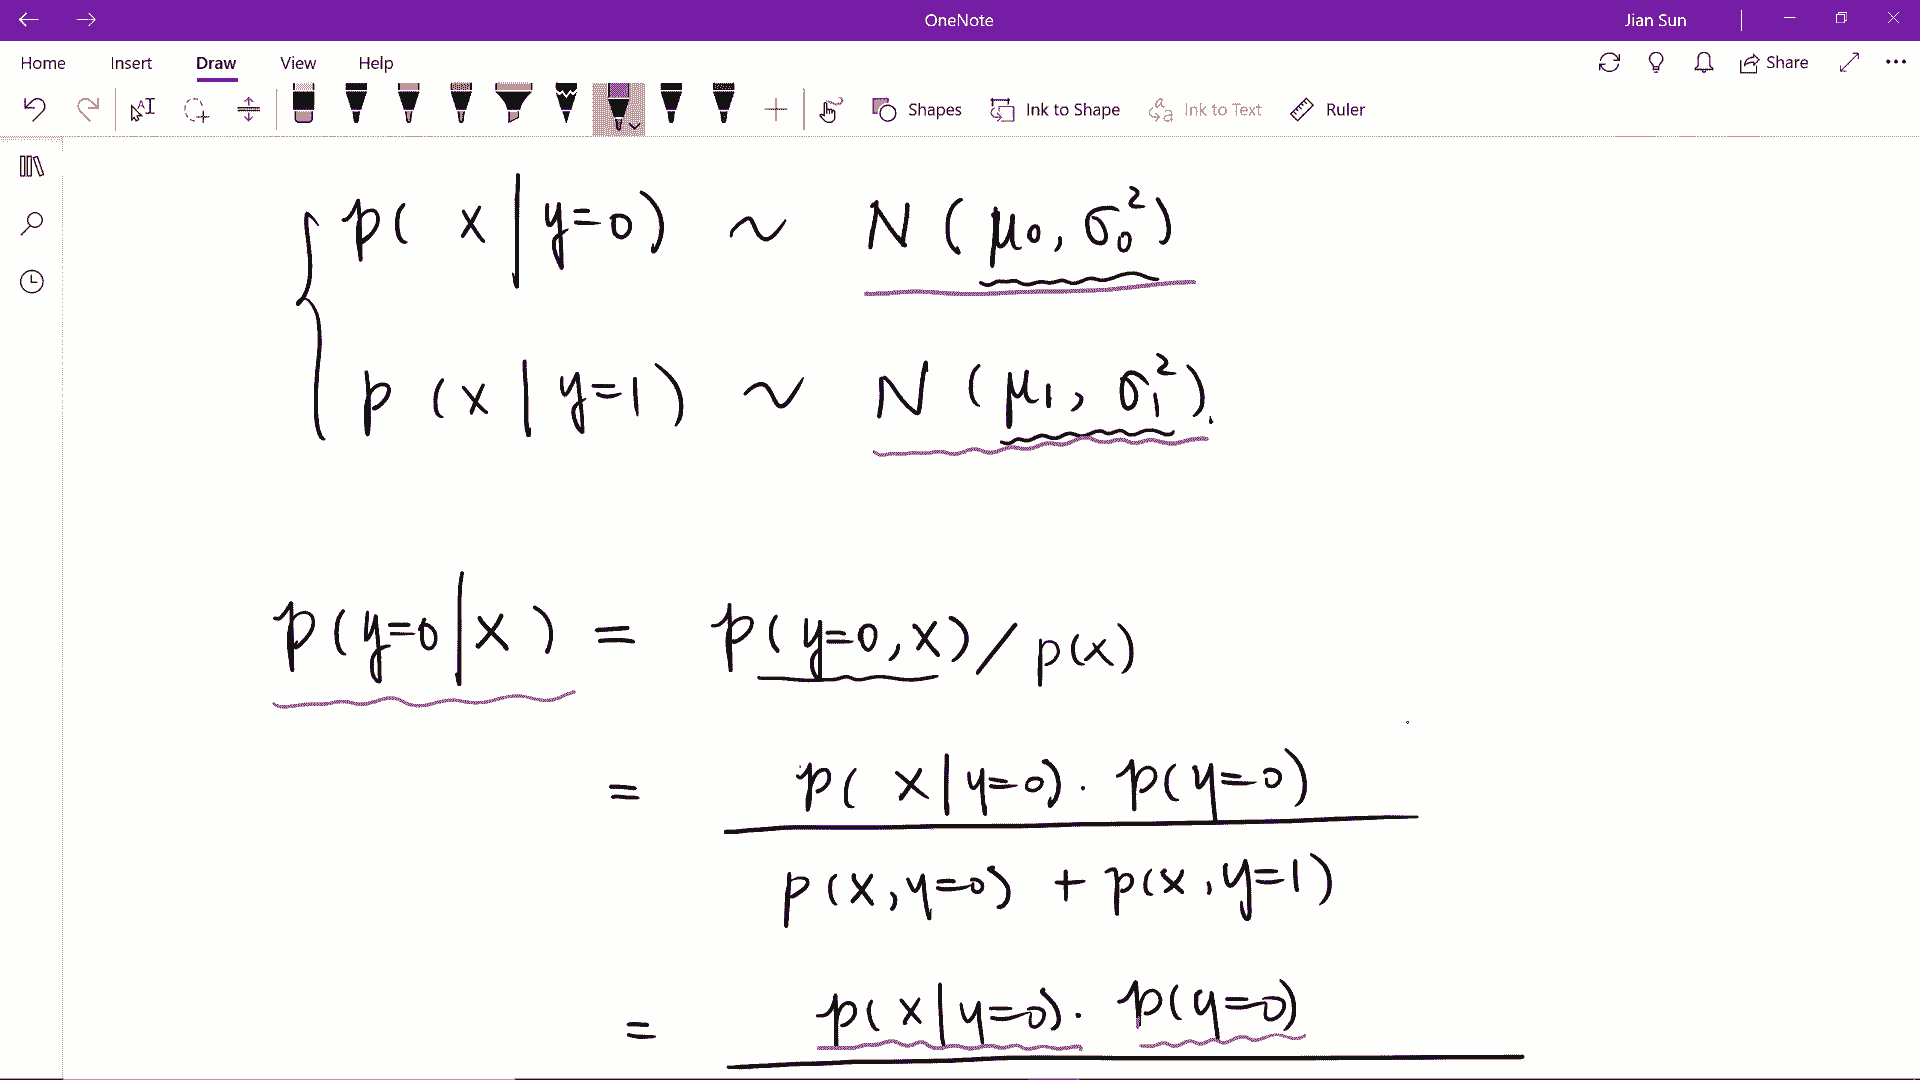 OneNote
Jian Sun
Home Insert Draw View Help
Share
Shapes Ink to Shape Ink to Text Ruler
p( x | y=0) ~ N ( μ₀, σ₀²)
p (x | y=1) ~ N ( μ₁, σ₁²).
p(y=0|x) = p(y=0,x)/p(x)
= p( x|y=0). p(y=0)
p(x,y=0) + p(x,y=1)
= p( x|y=0). p(y=0)